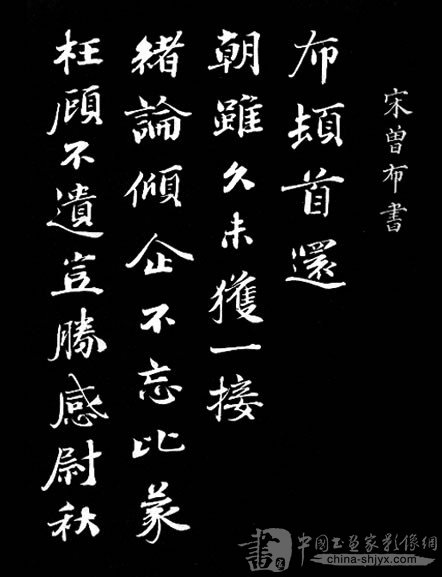 宋曽布書
布頓首還
朝雖久未獲一接
緒論傾企不忘比蒙
枉顧不遺豈勝感尉秋
書
中国书画家影像網
china-shjyx.com